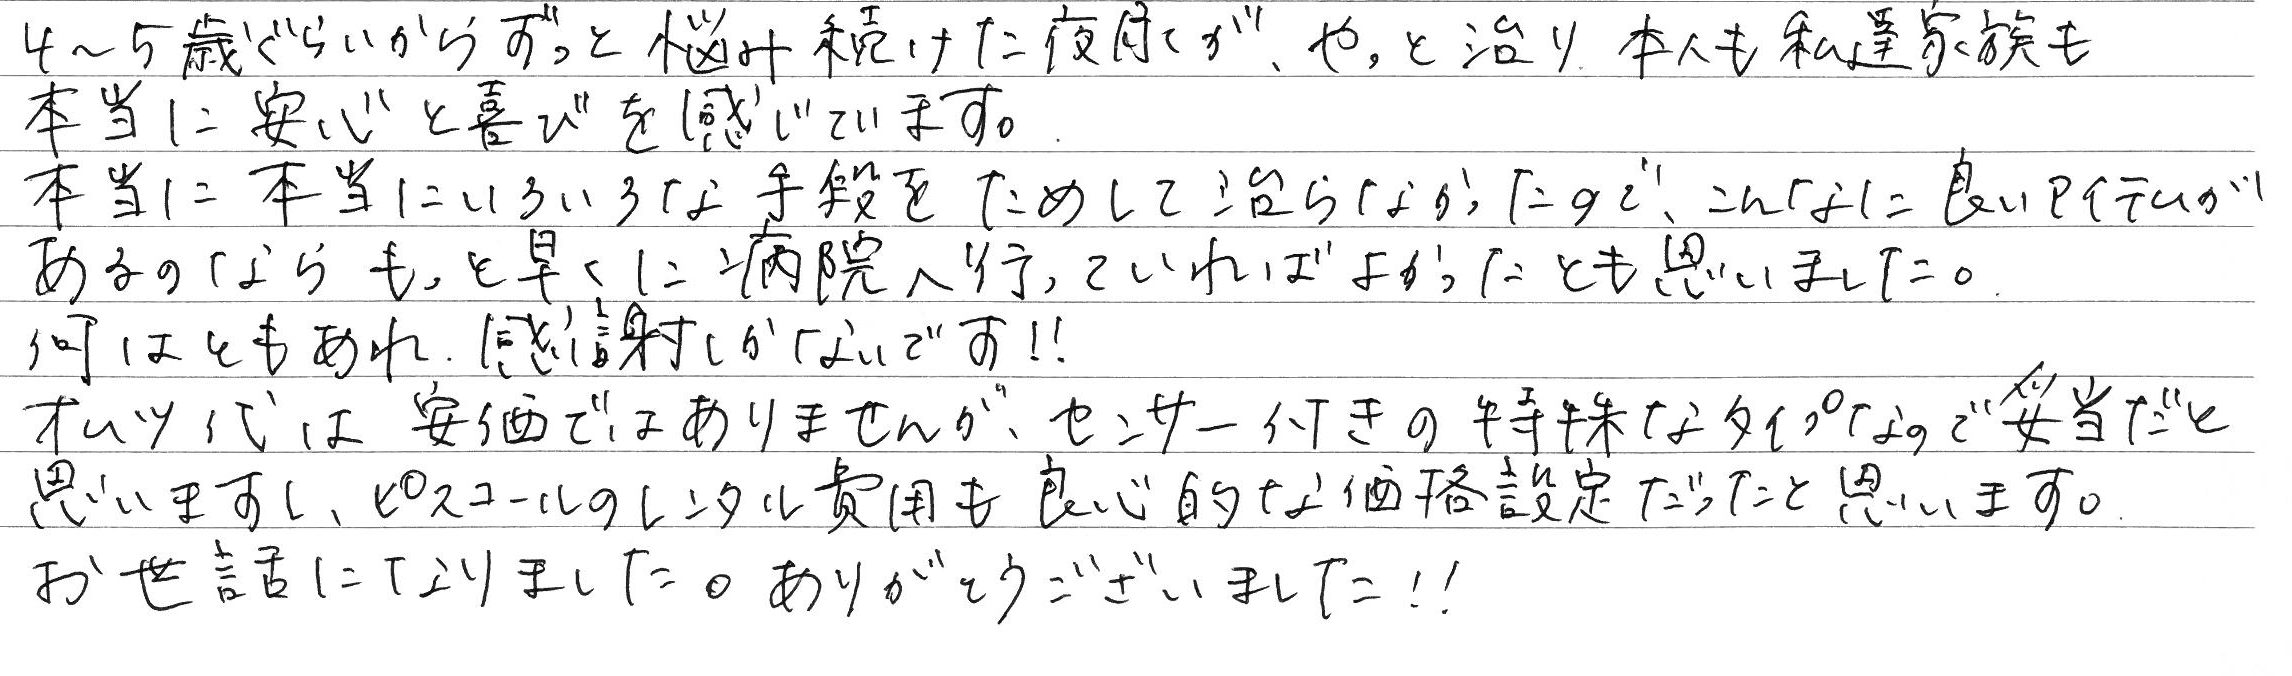 4～5歳ぐらいからずっと悩み続けた夜尿が、やっと治り 本人も私達家族も
本当に安心と喜びを感じています。
本当に本当にいろいろな手段をためして治らなかったので、こんなに良いアイテムが
あるのならもっと早くに病院へ行っていればよかったとも思いました。
何はともあれ、感謝しかないです!!
オムツ代は安価ではありませんが、センサー付きの特殊なタイプなので妥当だと
思いますし、ピスコールのレンタル費用も良心的な価格設定だったと思います。
お世話になりました。ありがとうございました!!